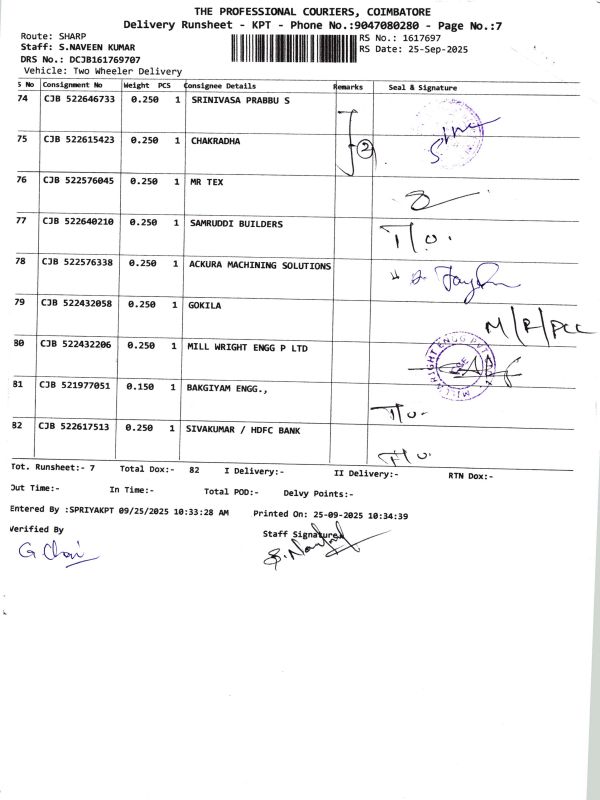 THE PROFESSIONAL COURIERS, COIMBATORE
Delivery Runsheet - KPT - Phone No.:9047080280 - Page No.:7
Route: SHARP
RS No.: 1617697
Staff: S.NAVEEN KUMAR
RS Date: 25-Sep-2025
DRS No.: DCJB161769707
Vehicle: Two Wheeler Delivery
S No Consignment No Weight PCS Consignee Details Remarks Seal & Signature
74 CJB 522646733 0.250 1 SRINIVASA PRABBU S
75 CJB 522615423 0.250 1 CHAKRADHA 2
76 CJB 522576045 0.250 1 MR TEX
77 CJB 522640210 0.250 1 SAMRUDDI BUILDERS T/o.
78 CJB 522576338 0.250 1 ACKURA MACHINING SOLUTIONS
79 CJB 522432058 0.250 1 GOKILA M/R/PCC
80 CJB 522432206 0.250 1 MILL WRIGHT ENGG P LTD
81 CJB 521977051 0.150 1 BAKGIYAM ENGG., T/o.
82 CJB 522617513 0.250 1 SIVAKUMAR / HDFC BANK T/o.
Tot. Runsheet:- 7 Total Dox:- 82 I Delivery:- II Delivery:- RTN Dox:-
Out Time:- In Time:- Total POD:- Delvy Points:-
Entered By :SPRIYAKPT 09/25/2025 10:33:28 AM Printed On: 25-09-2025 10:34:39
Verified By Staff Signature